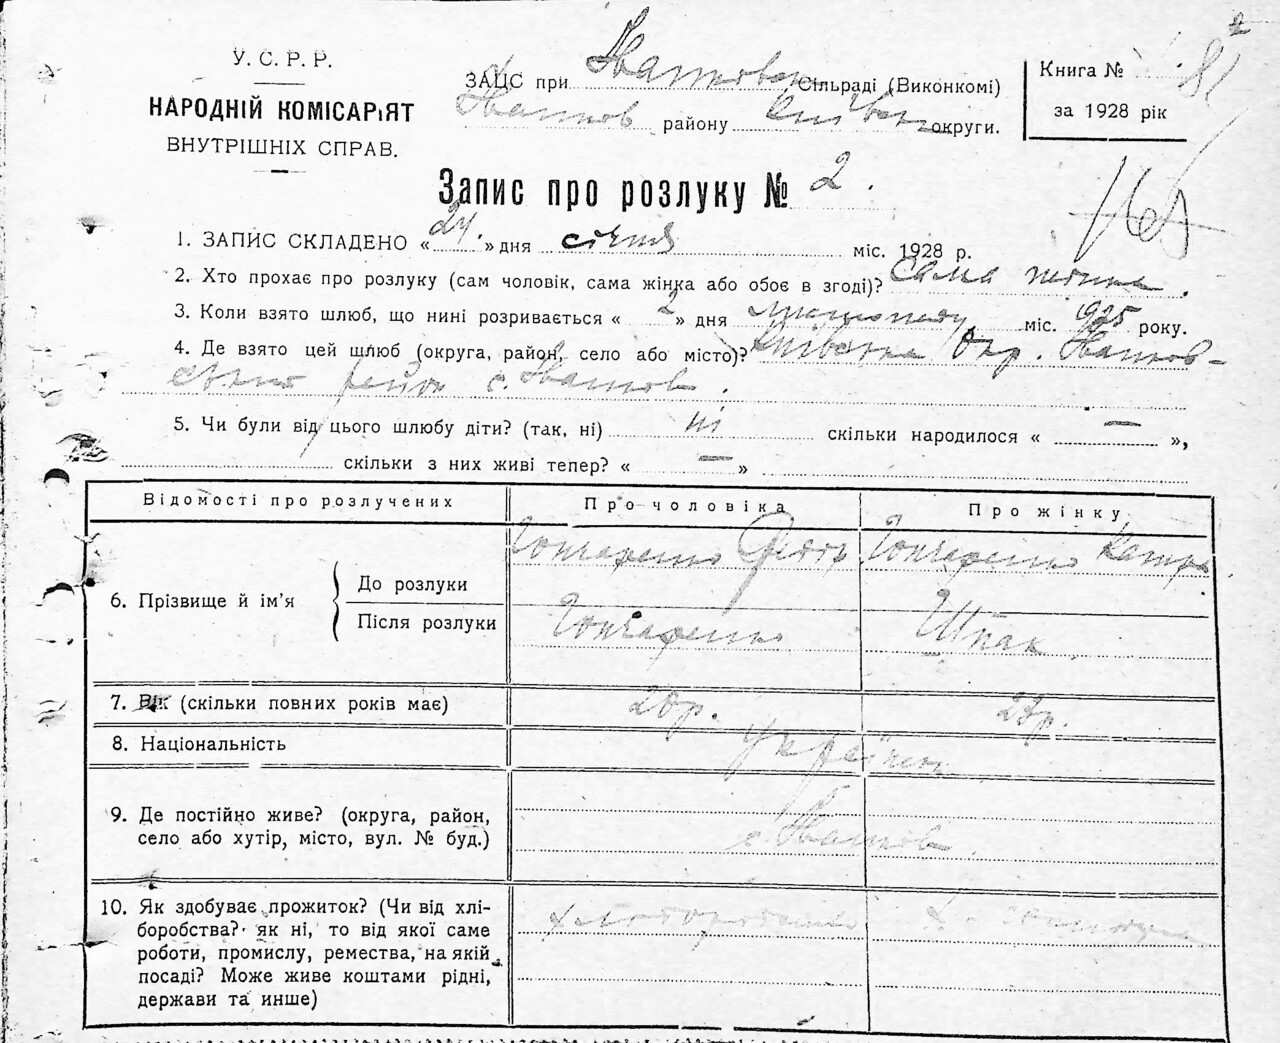 У. С. Р. Р.
НАРОДНІЙ КОМІСАРІЯТ
ВНУТРІШНІХ СПРАВ.
ЗАЦС при Іванковск. Сільраді (Виконкомі)
Іванков району Київськ округи.
Книга №
за 1928 рік
Запис про розлуку № 2.
1. ЗАПИС СКЛАДЕНО «24.» дня січня міс. 1928 р.
2. Хто прохає про розлуку (сам чоловік, сама жінка або обоє в згоді)? Сама жінка.
3. Коли взято шлюб, що нині розривається «2» дня міс. 1925 року.
4. Де взято цей шлюб (округа, район, село або місто)? Київська Окр. Іванков-
ський район с. Іванков.
5. Чи були від цього шлюбу діти? (так, ні) ні скільки народилося « — »,
скільки з них живі тепер? « — »
Відомості про розлучених
Про чоловіка
Про жінку
6. Прізвище й ім'я
До розлуки
Гончаренко
Гончаренко Катря
Після розлуки
Гончаренко
Шпак
7. Вік (скільки повних років має)
8. Національність
9. Де постійно живе? (округа, район,
село або хутір, місто, вул. № буд.)
с. Іванков.
10. Як здобуває прожиток? (Чи від хлі-
боробства? як ні, то від якої саме
роботи, промислу, ремества, на якій
посаді? Може живе коштами рідні,
держави та инше)